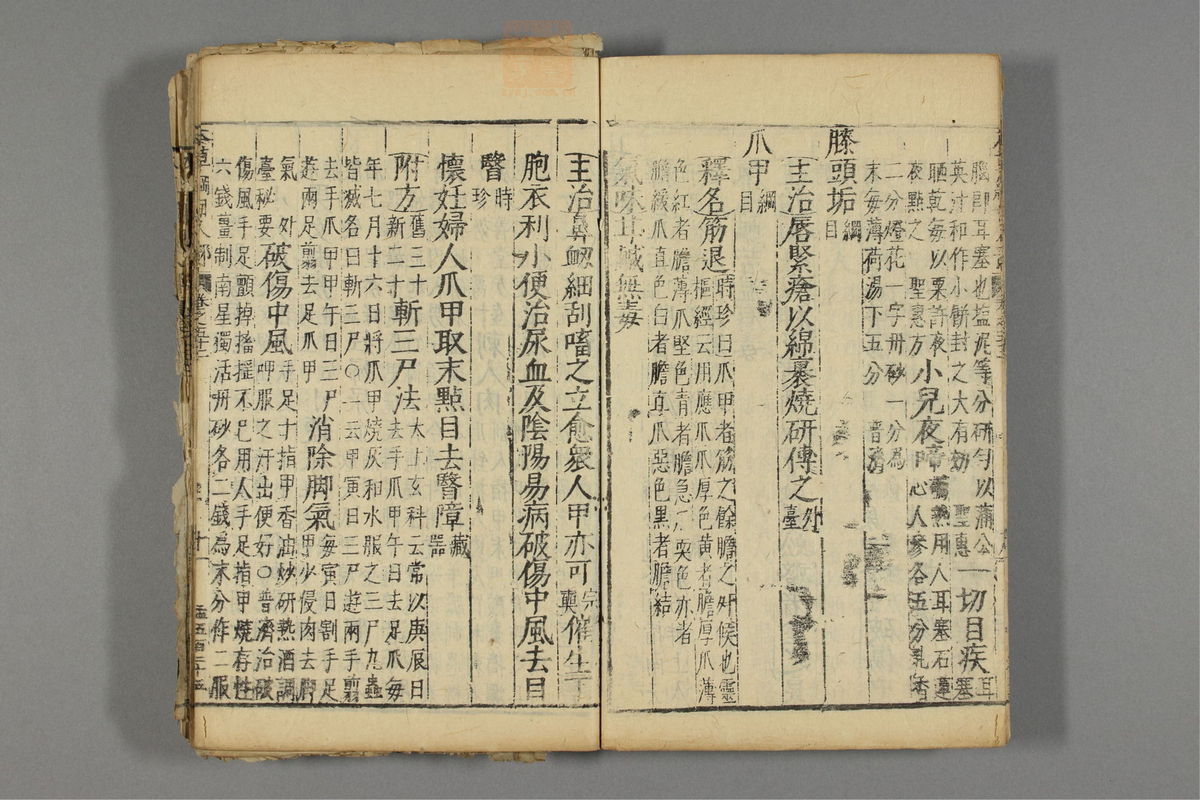 腦即耳塞也塩泥等分研勻以蒲公
英汁和作小餅封之大有効聖惠
一切目疾耳塞
晒乾每以粟許夜
夜點之聖惠方
小兒夜啼驚熱用人耳塞石蓮
心人參各五分乳香
二分燈花一字丹砂一分為
末每薄荷湯下五分普濟
膝頭垢綱目
主治唇緊瘡以綿裹燒研傅之外臺
爪甲綱目
釋名筋退時珍曰爪甲者筋之餘膽之外候也靈
樞經云肝應爪爪厚色黃者膽厚爪薄
色紅者膽薄爪堅色青者膽急爪耎色赤者
膽緩爪直色白者膽直爪惡色黑者膽結
氣味甘鹹無毒
主治鼻衂細刮㗜之立愈衆人甲亦可宗奭催生下
胞衣利小便治尿血及陰陽易病破傷中風去目
瞖時珍
懷妊婦人爪甲取末點目去瞖障藏器
附方舊三十新二十斬三尸法太上玄科云常以庚辰日
去手爪甲午日去足爪每
年七月十六日將爪甲燒灰和水服之三尸九蟲
皆滅名曰斬三尸○一云甲寅日三尸遊兩手翦
去手爪甲甲午日三尸
遊兩足翦去足爪甲
消除脚氣每寅日割手足
甲少侵肉去脚
氣外臺秘要
破傷中風手足十指甲香油炒研熱酒調
呷服之汗出便好○普濟治破
傷風手足顫掉搐搦不已用人手足指甲燒存性
六錢薑制南星獨活丹砂各二錢為末分作二服
本草綱目人部 卷之五十二